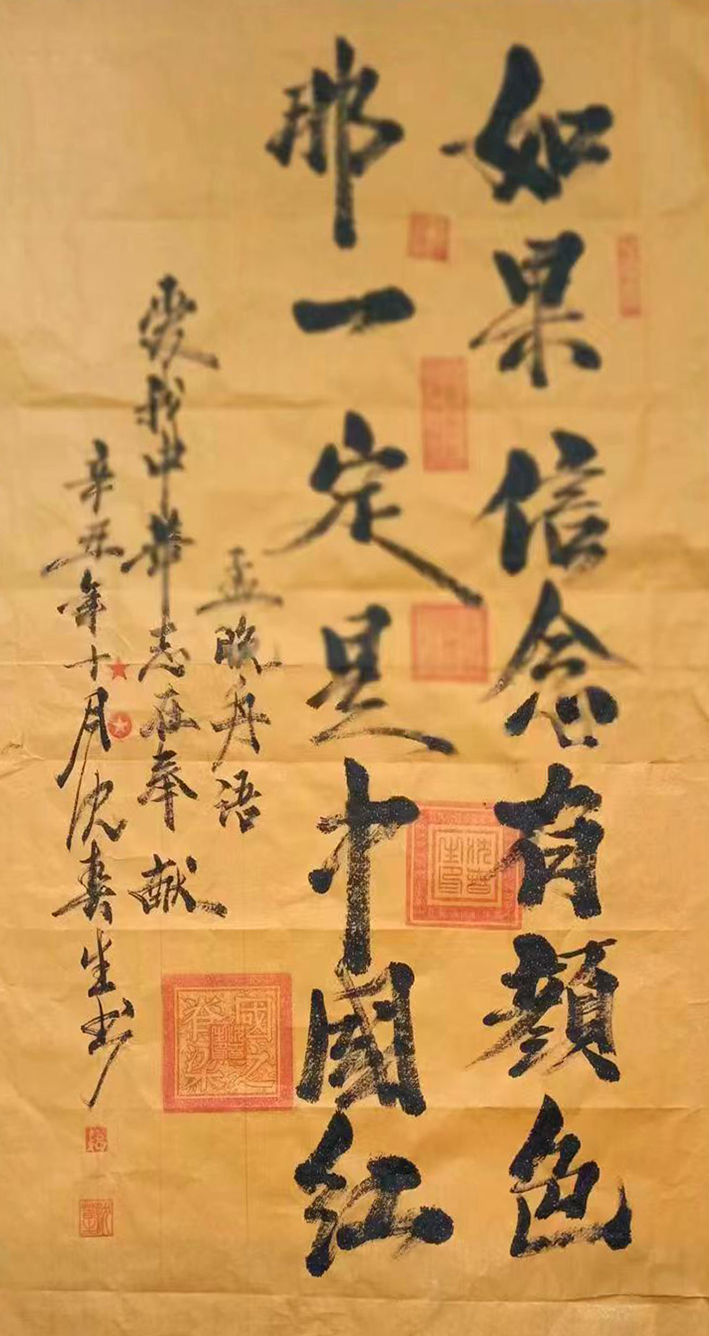 如果信念有颜色
那一定是中国红
孟晚舟语
爱我中华志在奉献
辛丑年十月沈春生书
国之脊梁